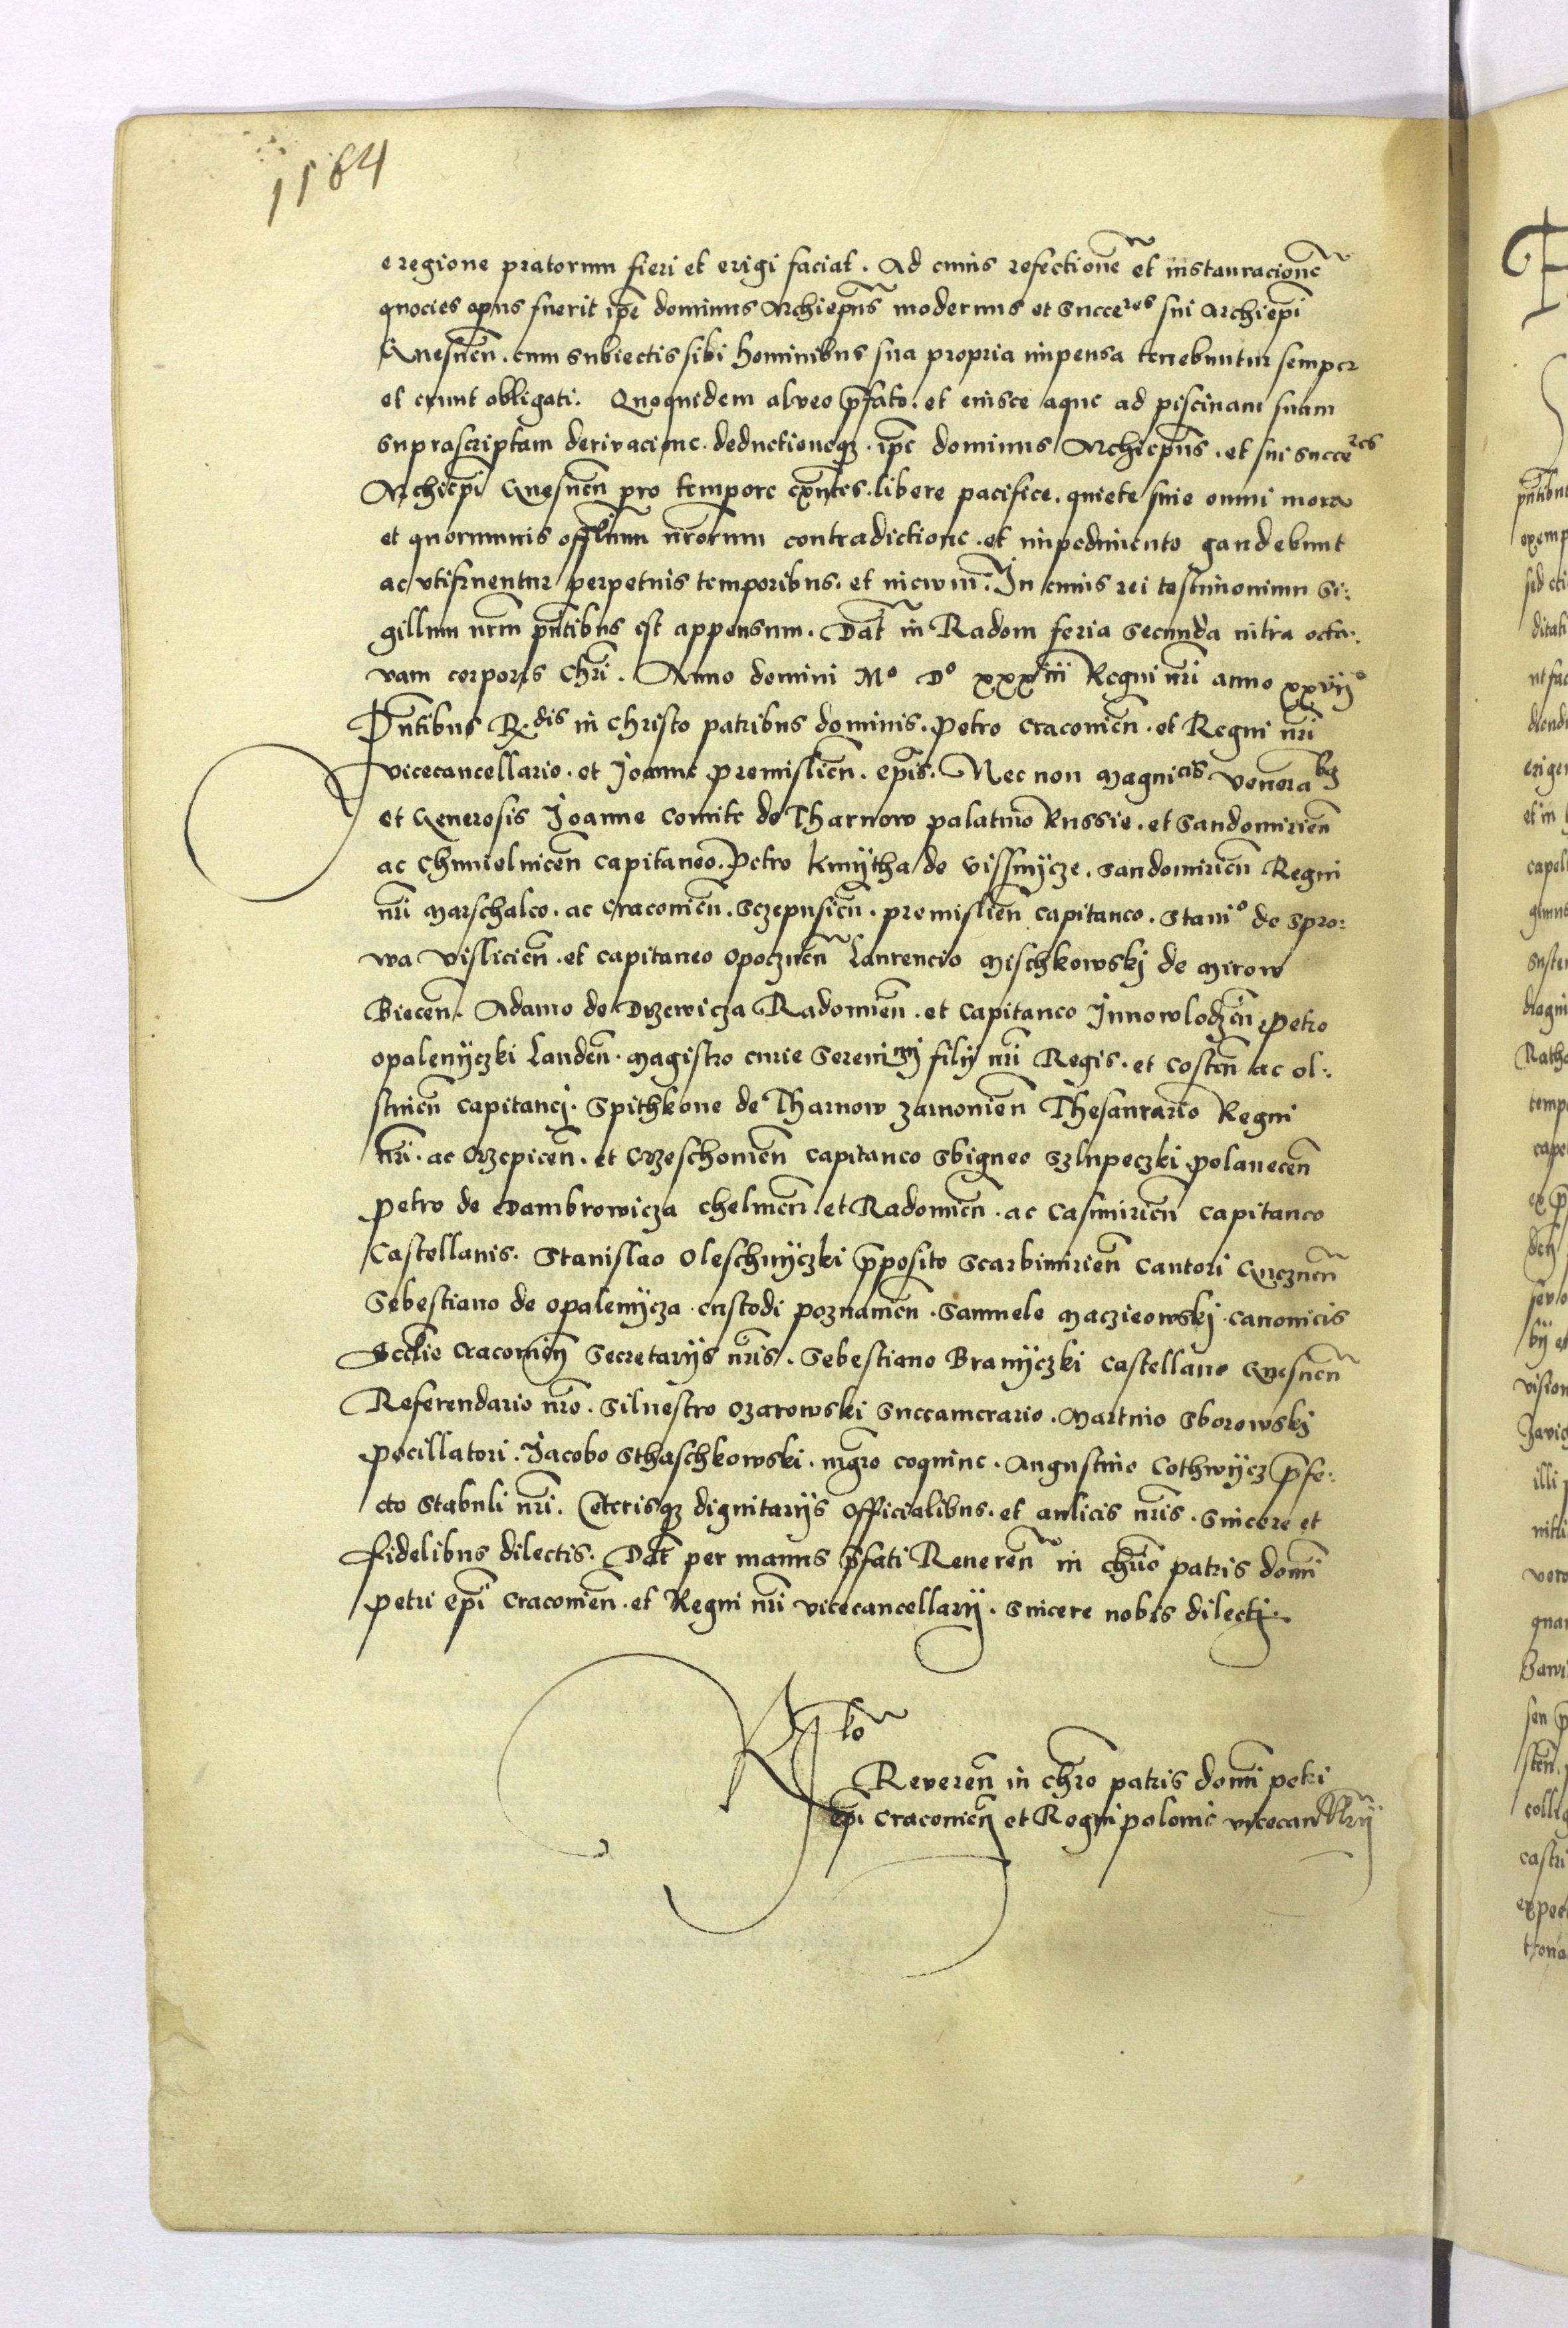 1564
e regione pratorum fieri et erigi faciat. Ad cuius refectionẽ et instauracionẽ
quocies opus fuerit ip̃e dominus Archiep̃us modernus et Succeres sui Archiep̃i
Gnesneñ. cum Subiectis sibi hominibus sua propria impensa tenebuntur semper
et erunt obligati. Quoquidem alveo p̃fato. et eiusce aque ad piscinam suam
suprascriptam derivacione. deductioneqʒ. ip̃e dominus Archiep̃us. et sui Succeres
Archiep̃i Gnesneñ pro tempore exñtes. libere pacifice. quiete sine omni mora
et quorumuis offlium nr̃orum contradictione. et impedimento gaudebunt
ac vtifruentur perpetuis temporibus. et in ewm̃. In cuius rei testimonium Si:
gillum nr̃m pñtibus est appensum. Dat̃ in Radom feria Secunda infra octa:
vam corporis Chr̃i. Anno domini Mº Dº xxxiii Regni nr̃i anno xxvijº
Pñtibus R.dis in Christo patribus dominis. Petro Cracovieñ. et Regni nr̃i
vicecancellario. et Joanne Premislieñ. ep̃is. Nec non Magnicis venerabʒ
et Generosis Joanne Comite de Tharnow palatino Russie. et Sandomirieñ
ac Chmielniceñ capitaneo. Petro Kmÿtha de Vissnÿcze. Sandomirieñ Regni
nr̃i Marschalco. ac Cracovieñ. Sczepusieñ. premislieñ capitaneo. Staniº de Spro:
wa Visliciеñ. et capitaneo Opoczneñ Laurencio Mischkowskj de Mirow
Bieceñ. Adamo de Drzewicza Radomieñ. et capitaneo Jnnowlodzeñ Petro
Opalenÿczki Landeñ. Magistro curie Serenimi filij nr̃i Regis. et Costeñ ac ol:
stineñ capitaneo. Spithkone de Tharnow zarnowieñ Thesaurario Regni
nr̃i. ac Krzepiceñ. et Crzeschowieñ capitaneo Sbigneo Szlupeczki Polaneceñ
Petro de Dambrowicza Chelmeñ. et Radomieñ. ac Casmirieñ capitaneo
Castellanis. Stanislao Oleschnÿczki p̃posito Scarbimirieñ Cantori Gnezneñ
Sebestiano de Opalenÿcza custodi poznanieñ. Samuele Maczieowskj. canonicis
Eccl̃ie Cracovieñ Secretarijs nr̃is. Sebestiano Branÿczki castellano Gnesneñ
Referendario nr̃o. Siluestro Ozarowski Succamerario. Martino Sborowskj
pocillatori. Jacobo Sthaschkowski. mgr̃o coquine. Augustino Cothwÿcz p̃fe:
cto Stabuli nr̃i. Ceterisqʒ dignitarijs Officialibus. et aulicis nr̃is. Sincere et
fidelibus dilectis. Dat̃ per manus p̃fati Revereñ in chr̃o patris domĩ
petri ep̃i Cracovieñ. et Regni nr̃i vicecancellarij. Sincere nobis dilecti.
Rlo
Revereñ in chr̃o patris domĩ petri
ep̃i Cracovieñ et Regni polonie vicecancellrij